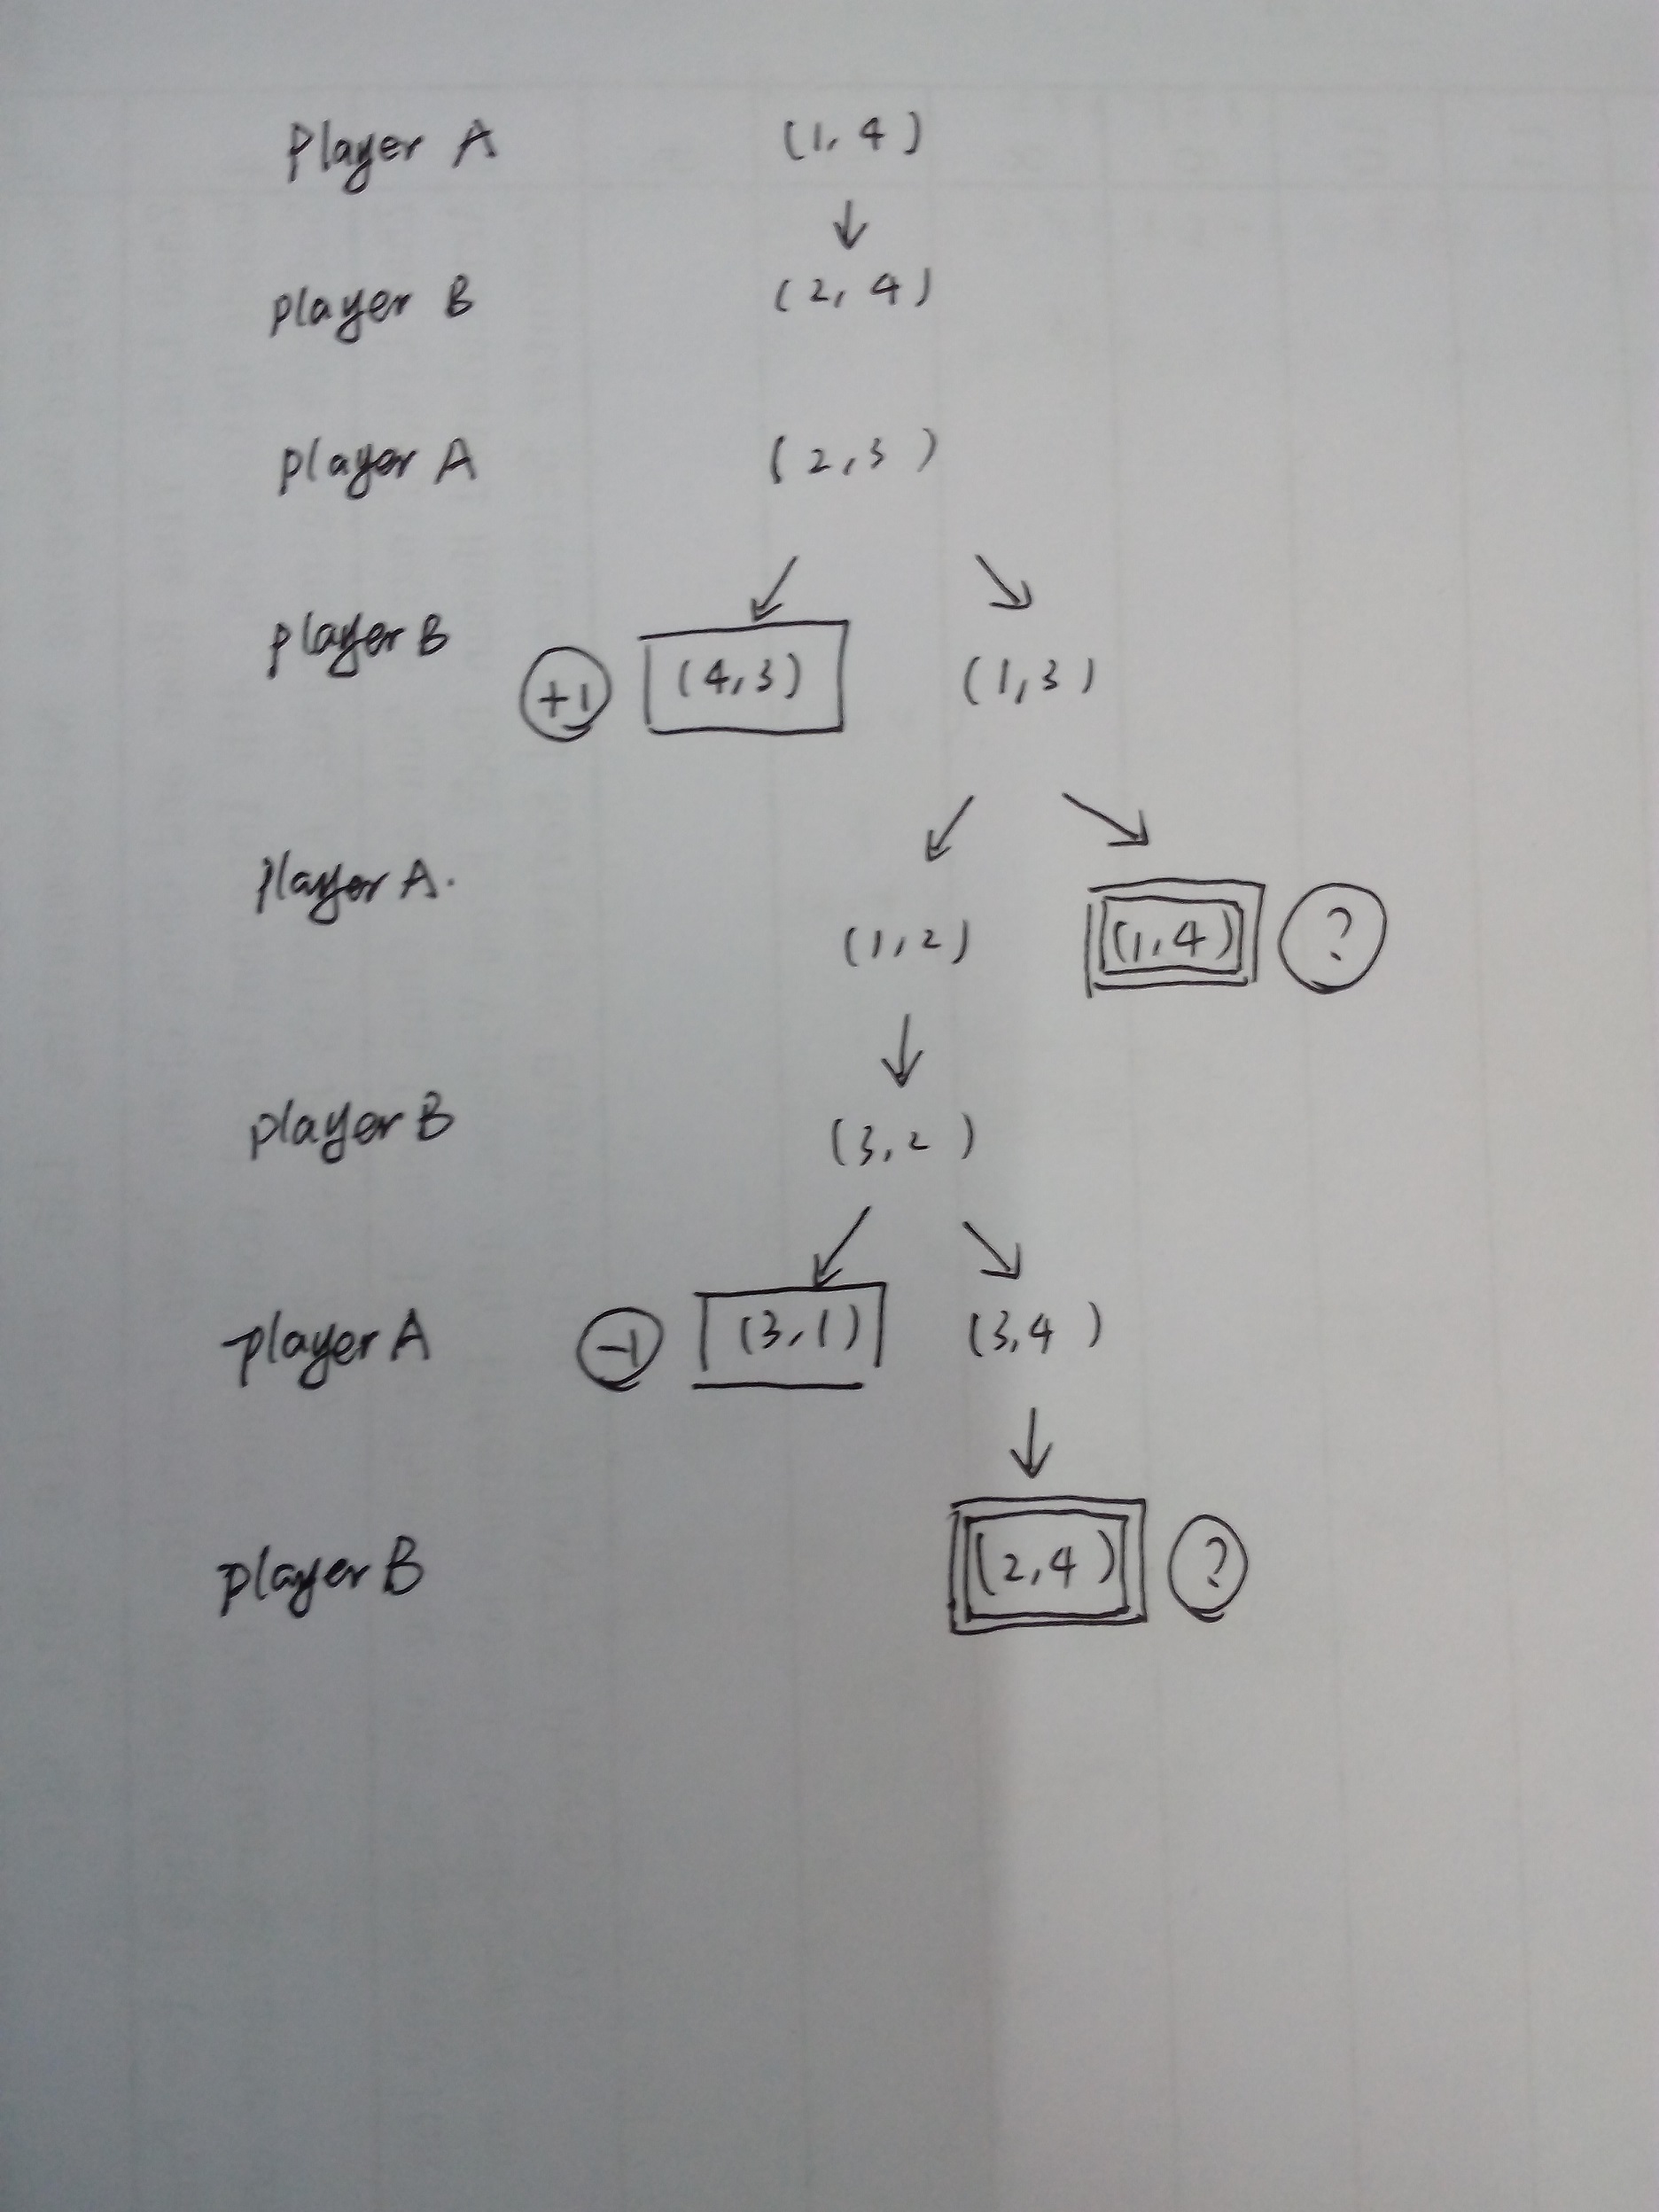 Player A (1,4)
player B (2,4)
player A (2,3)
player B +1 (4,3) (1,3)
player A. (1,2) (1,4) ?
player B (3,2)
player A -1 (3,1) (3,4)
player B (2,4) ?